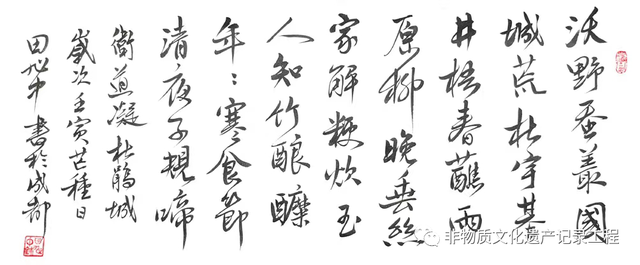 沃野蚕叢國
城荒杜宇基
井梧春蘸雨
原柳晚垂絲
家解粳炊玉
人知竹酿醾
年々寒食節
清夜子規啼
衛道凝杜鵑城
歲次壬寅芒種日
田旭中書於成都
非物质文化遗产记录工程